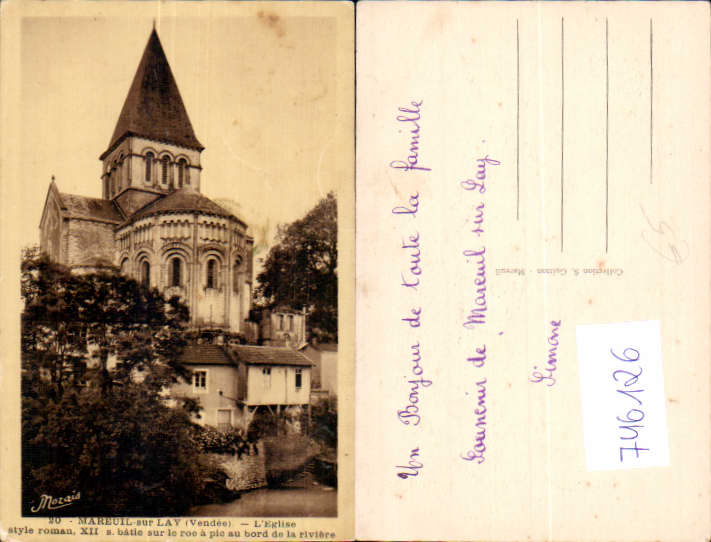 Morais
20 - MAREUIL-sur LAY (Vendée) - L'Eglise
style roman, XII s. bâtie sur le roc à pic au bord de la rivière
Un Bonjour de toute la famille
Souvenir de Mareuil sur Lay.
Simone
Collection S. - Mareuil
65
746126